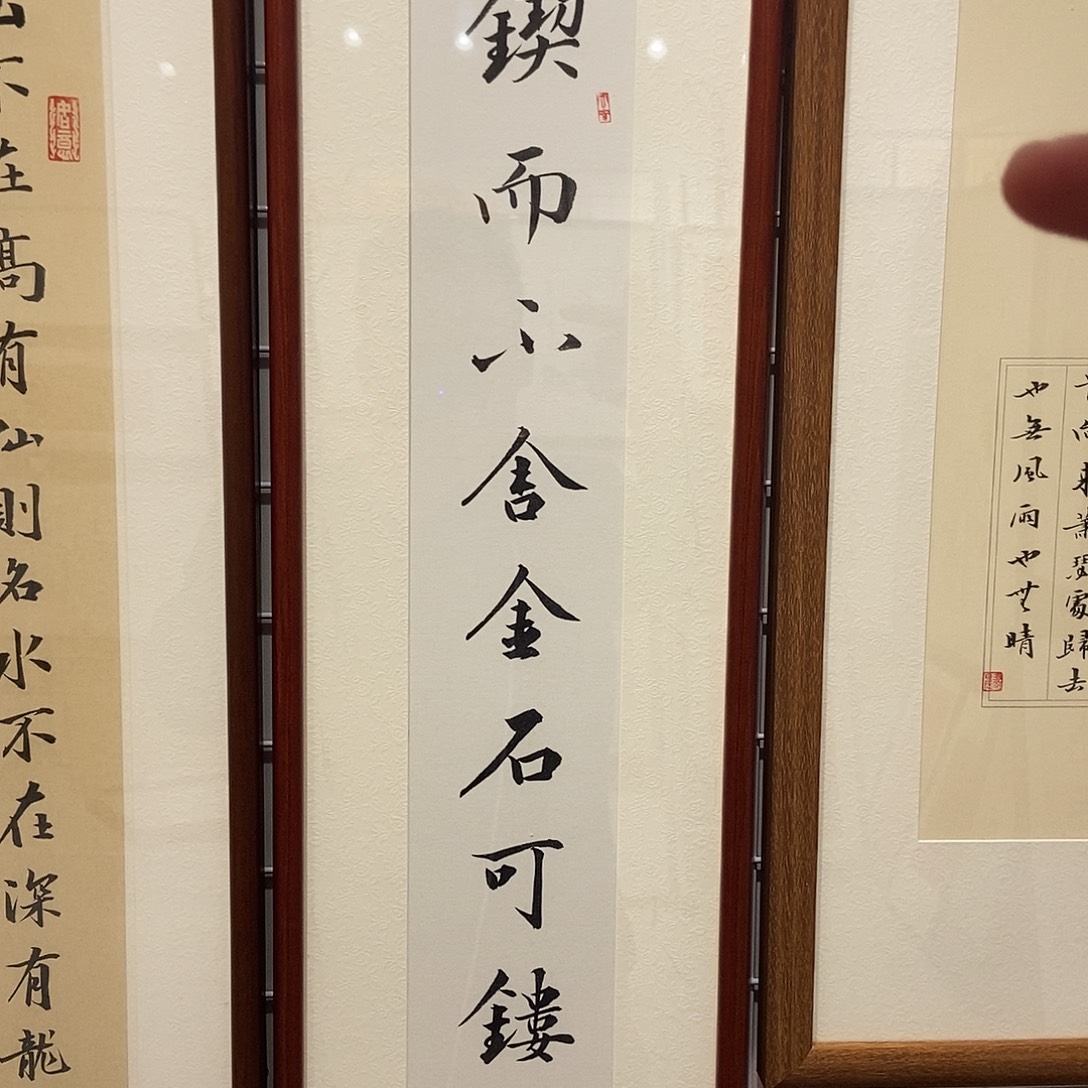 向來蕭瑟處歸去
也無風雨也無晴
鍥而不舍金石可鏤
山不在髙有仙則名水不在深有龍